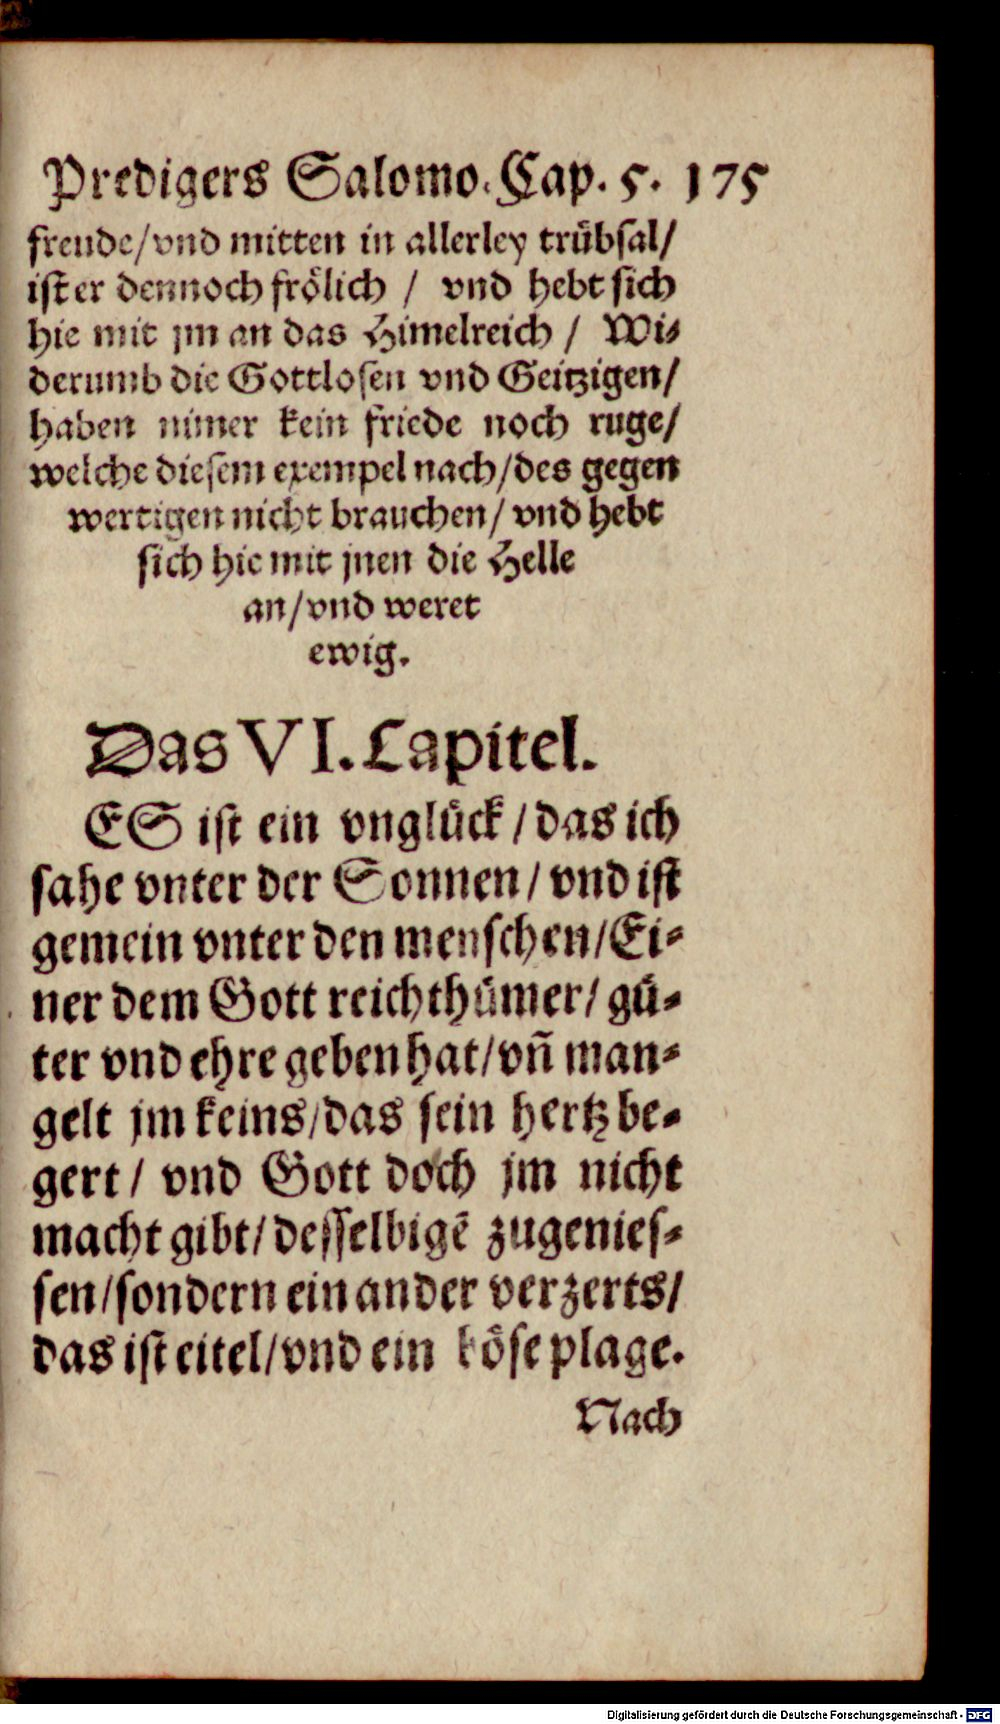 Predigers Salomo. Cap. 5. 175
freude/vnd mitten in allerley trübsal/
ist er dennoch frölich / vnd hebt sich
hie mit jm an das Himelreich / Wi-
derumb die Gottlosen vnd Geitzigen/
haben nimer kein friede noch ruge/
welche diesem exempel nach/des gegen
wertigen nicht brauchen/ vnd hebt
sich hie mit jnen die Helle
an/vnd weret
ewig.
Das VI. Capitel.
ES ist ein vnglück / das ich
sahe vnter der Sonnen/ vnd ist
gemein vnter den menschen/Ei-
ner dem Gott reichthümer/ gü-
ter vnd ehre geben hat/vñ man-
gelt jm keins/das sein hertz be-
gert/ vnd Gott doch jm nicht
macht gibt/desselbigē zugenies-
sen/sondern ein ander verzerts/
das ist eitel/vnd ein böse plage.
Nach
Digitalisierung gefördert durch die Deutsche Forschungsgemeinschaft - DFG